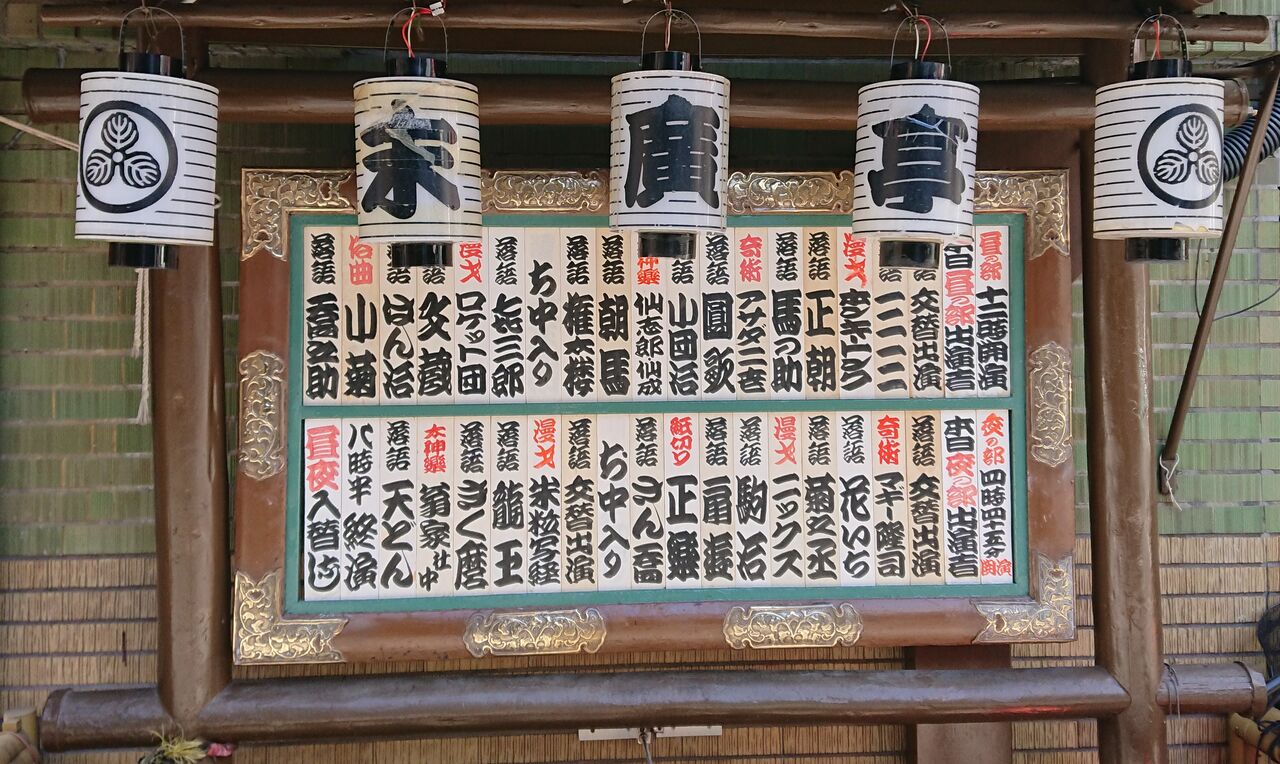 末廣亭
昼の部 十二時開演
昼の部出演者
落語 交替出演
落語
漫才
落語 正朝
落語 馬の助
奇術 アサダ二世
落語 圓歌
落語 小団治
神樂 仙志郎仙成
落語 朝馬
落語 権太楼
お中入り
落語 㐂三郎
漫才 ロケット団
落語 文蔵
落語 はん治
俗曲 小菊
落語 喬之助
夜の部 四時四十五分開演
本日夜の部出演者
落語 交替出演
奇術 マギー隆司
落語 花いち
落語 菊之丞
漫才 ニックス
落語 駒治
落語 扇遊
紙切り 正樂
落語 さん喬
お中入り
落語 交替出演
漫才 米粒写経
落語 龍玉
落語 きく麿
太神樂 翁家社中
落語 天どん
八時半 終演
昼夜入替なし